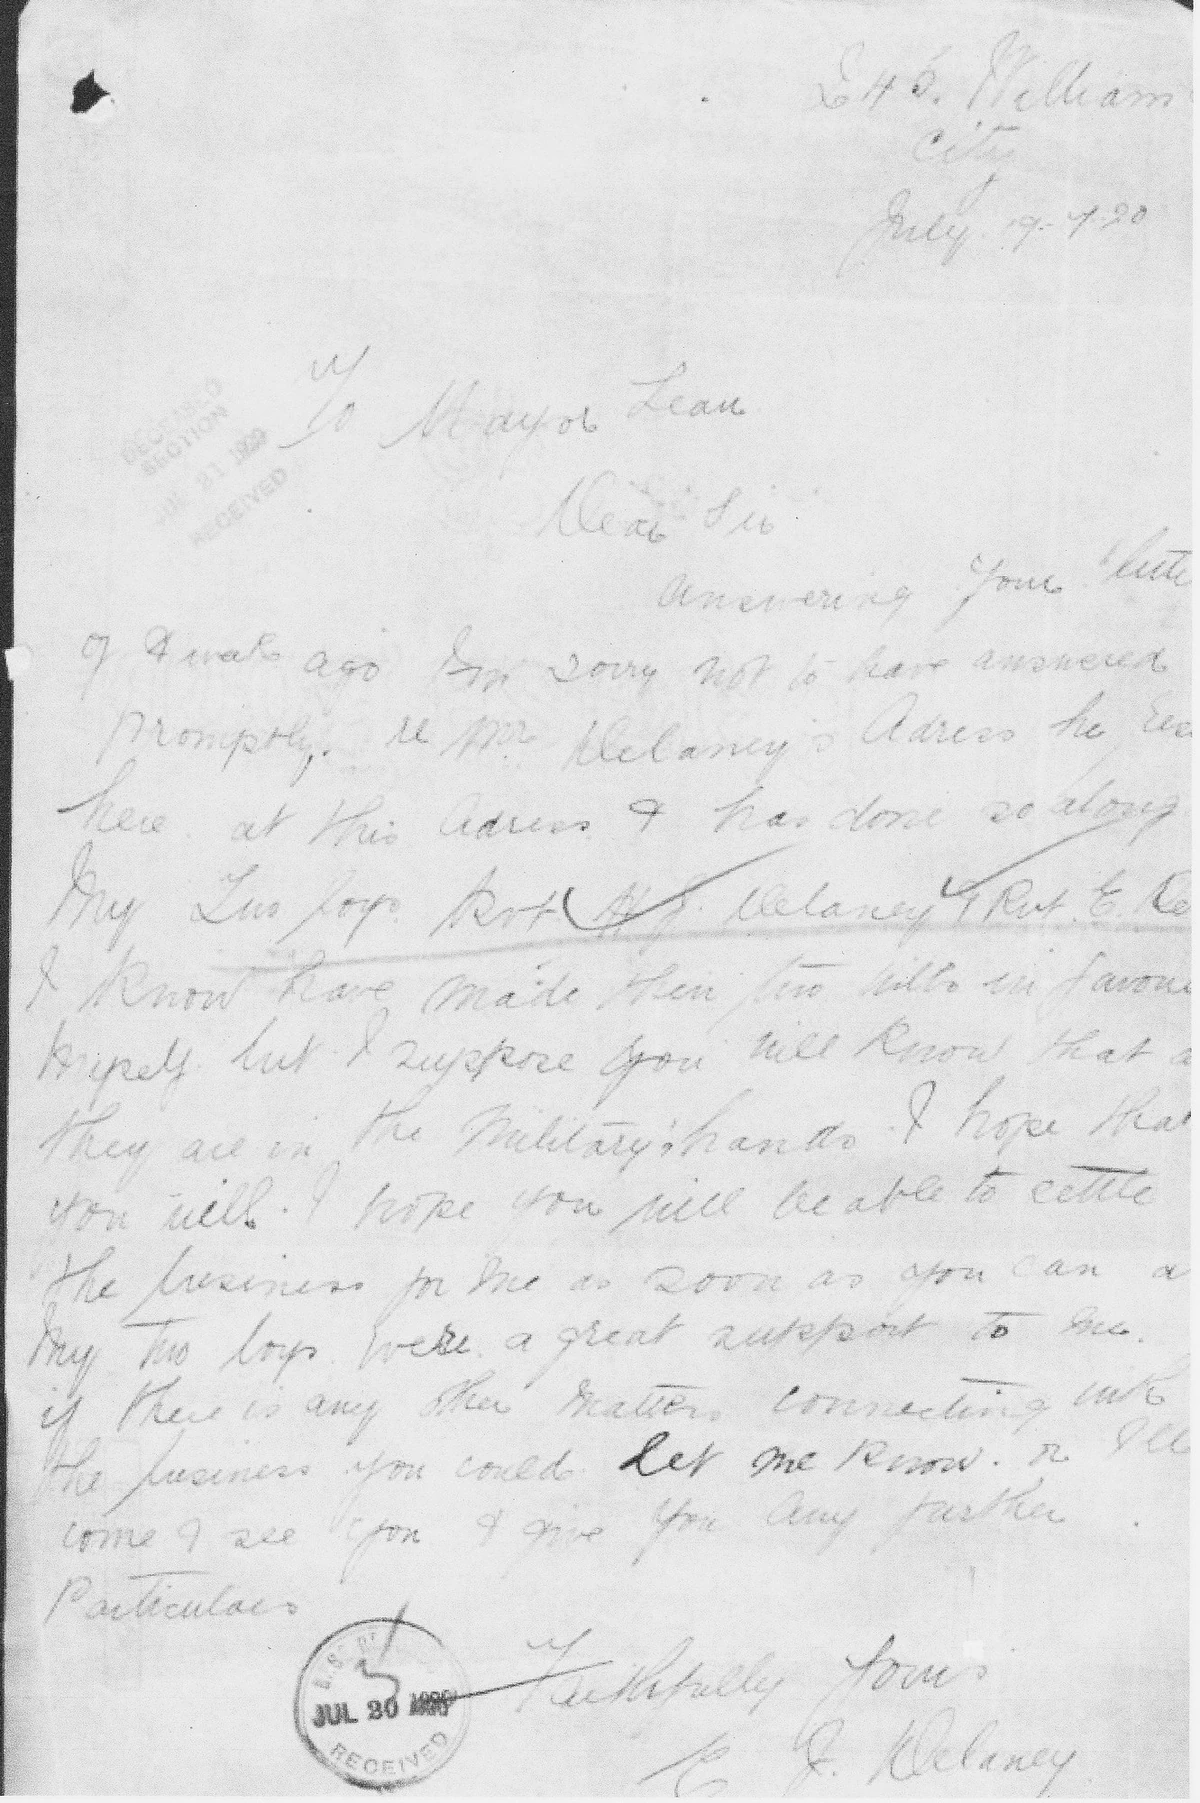 William
City
July 19-7-20
To Mayor Lean
Dear Sir
Answering your lette
of weeks ago Im sorry not to have answered
Promptly. re Mr Delaney's Adress he
here at this Adress & has done so along
My Two boys Pvt H J. Delaney & Pvt. E. De
I know have made their two wills in favour
Myself but I suppose you will know that a
they are in the Military's hands I hope that
you will. I hope you will be able to settle
the business for me as soon as you can a
My two boys were a great support to me.
if there is any other matters connecting with
the business you could let me know. or Ill
come & see you & give you any further
Particulars
Faithfully Yours
E J. Delaney
DECEASED
SECTION
JUL 21 1920
RECEIVED
JUL 20 1920
RECEIVED